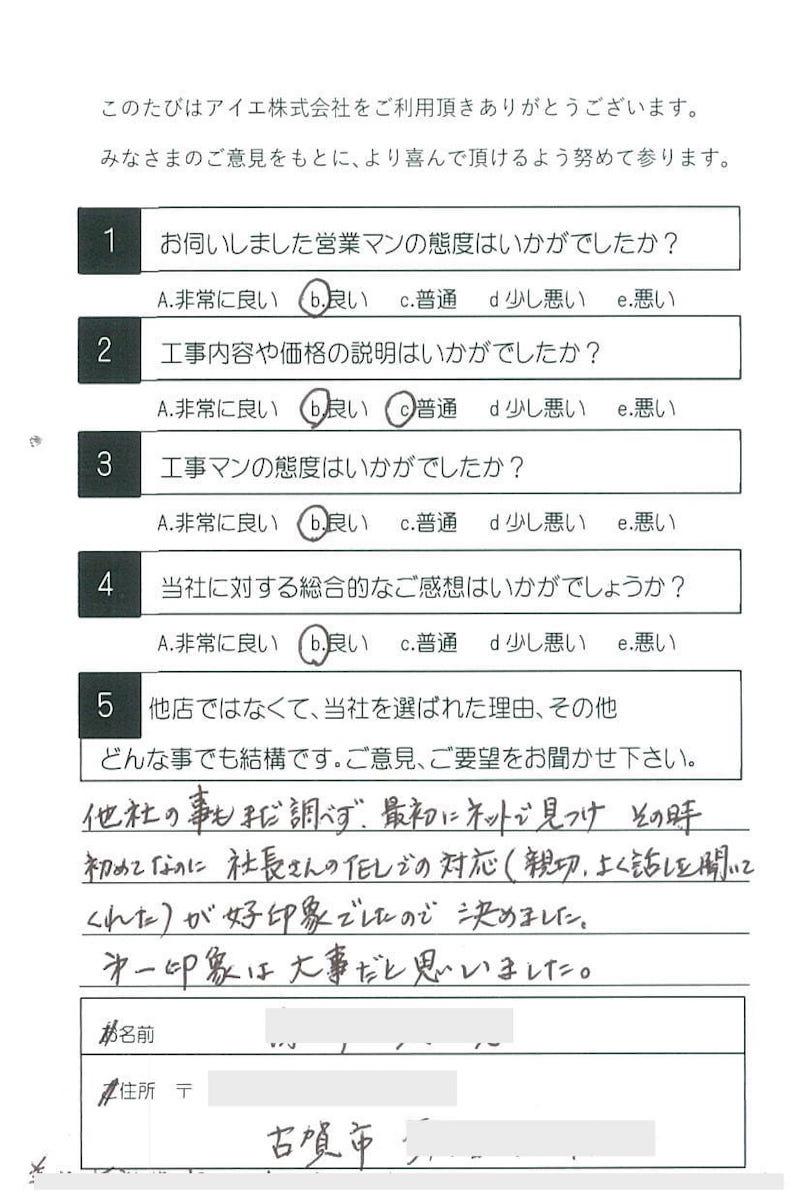 このたびはアイエ株式会社をご利用頂きありがとうございます。
みなさまのご意見をもとに、より喜んで頂けるよう努めて参ります。
1 お伺いしました営業マンの態度はいかがでしたか？
A.非常に良い b.良い c.普通 d少し悪い e.悪い
2 工事内容や価格の説明はいかがでしたか？
A.非常に良い b.良い c.普通 d少し悪い e.悪い
3 工事マンの態度はいかがでしたか？
A.非常に良い b.良い c.普通 d少し悪い e.悪い
4 当社に対する総合的なご感想はいかがでしょうか？
A.非常に良い b.良い c.普通 d少し悪い e.悪い
5 他店ではなくて、当社を選ばれた理由、その他
どんな事でも結構です。ご意見、ご要望をお聞かせ下さい。
他社の事もまだ調べず、最初にネットで見つけ その時
初めてなのに 社長さんのTELでの対応(親切、よく話しを聞いて
くれた)が好印象でしたので 決めました。
第一印象は大事だと思いいました。
お名前
ご住所 〒
古賀市